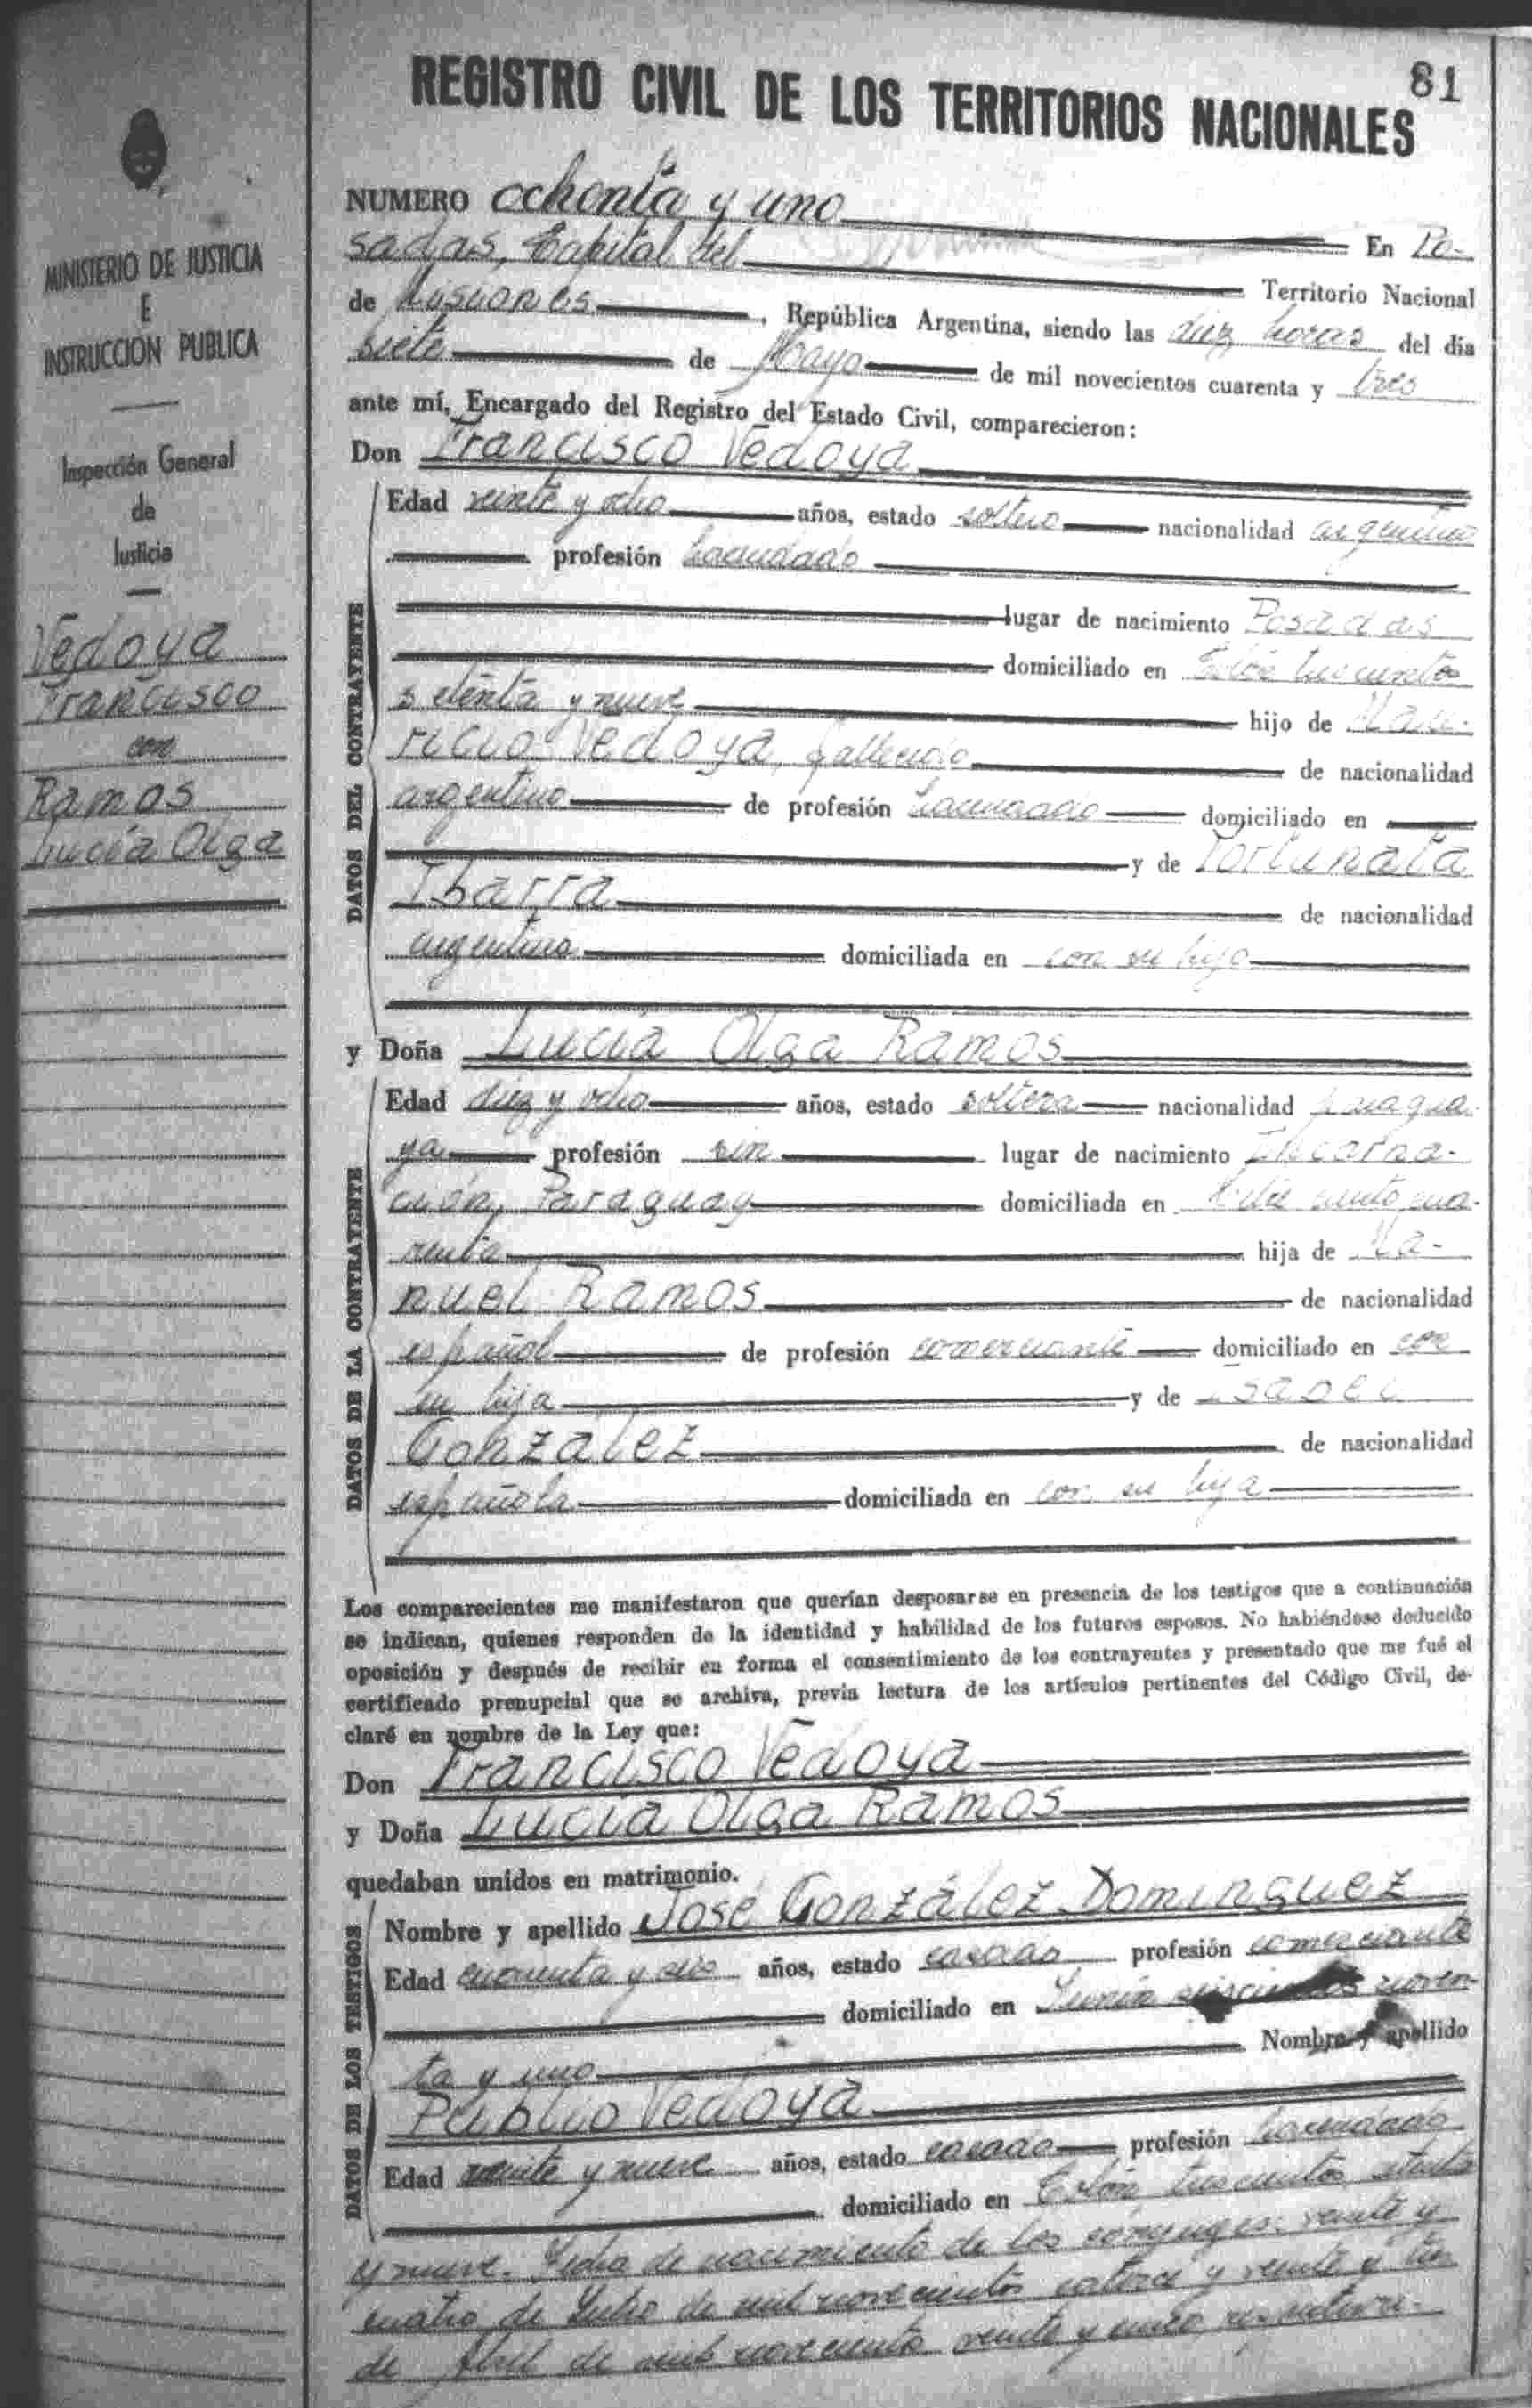 81
REGISTRO CIVIL DE LOS TERRITORIOS NACIONALES
MINISTERIO DE JUSTICIA
E
INSTRUCCION PUBLICA
Inspección General
de
Justicia
Vedoya
Francisco
con
Ramos
Lucía Olga
NUMERO ochenta y uno En Po-
sadas, Capital del Territorio Nacional
de Misiones, República Argentina, siendo las diez horas del día
siete de Mayo de mil novecientos cuarenta y tres
ante mí, Encargado del Registro del Estado Civil, comparecieron:
Don Francisco Vedoya
DATOS DEL CONTRAYENTE
Edad veinte y ocho años, estado soltero nacionalidad argentino
profesión hacendado
lugar de nacimiento Posadas
domiciliado en Colón trescientos
setenta y nueve hijo de Mau-
ricio Vedoya, fallecido de nacionalidad
argentino de profesión hacendado domiciliado en
y de Fortunata
Ibarra de nacionalidad
argentina domiciliada en con su hijo
y Doña Lucía Olga Ramos
DATOS DE LA CONTRAYENTE
Edad diez y ocho años, estado soltera nacionalidad paragua-
ya profesión sin lugar de nacimiento Encarna-
ción, Paraguay domiciliada en ciento cua-
renta hija de Ma-
nuel Ramos de nacionalidad
español de profesión comerciante domiciliado en con
su hija y de Isabel
González de nacionalidad
española domiciliada en con su hija
Los comparecientes me manifestaron que querían desposarse en presencia de los testigos que a continuación
se indican, quienes responden de la identidad y habilidad de los futuros esposos. No habiéndose deducido
oposición y después de recibir en forma el consentimiento de los contrayentes y presentado que me fué el
certificado prenupcial que se archiva, previa lectura de los artículos pertinentes del Código Civil, de-
claré en nombre de la Ley que:
Don Francisco Vedoya
y Doña Lucía Olga Ramos
quedaban unidos en matrimonio.
DATOS DE LOS TESTIGOS
Nombre y apellido José González Dominguez
Edad cuarenta y seis años, estado casado profesión comerciante
domiciliado en Junín seiscientos noven-
ta y uno Nombre y apellido
Publio Vedoya
Edad veinte y nueve años, estado casado profesión hacendado
domiciliado en Colón trescientos setenta
y nueve. Fecha de nacimiento de los cónyuges: veinte y
cuatro de de mil novecientos catorce y veinte y tres
de Abril de mil novecientos veinte y cinco,